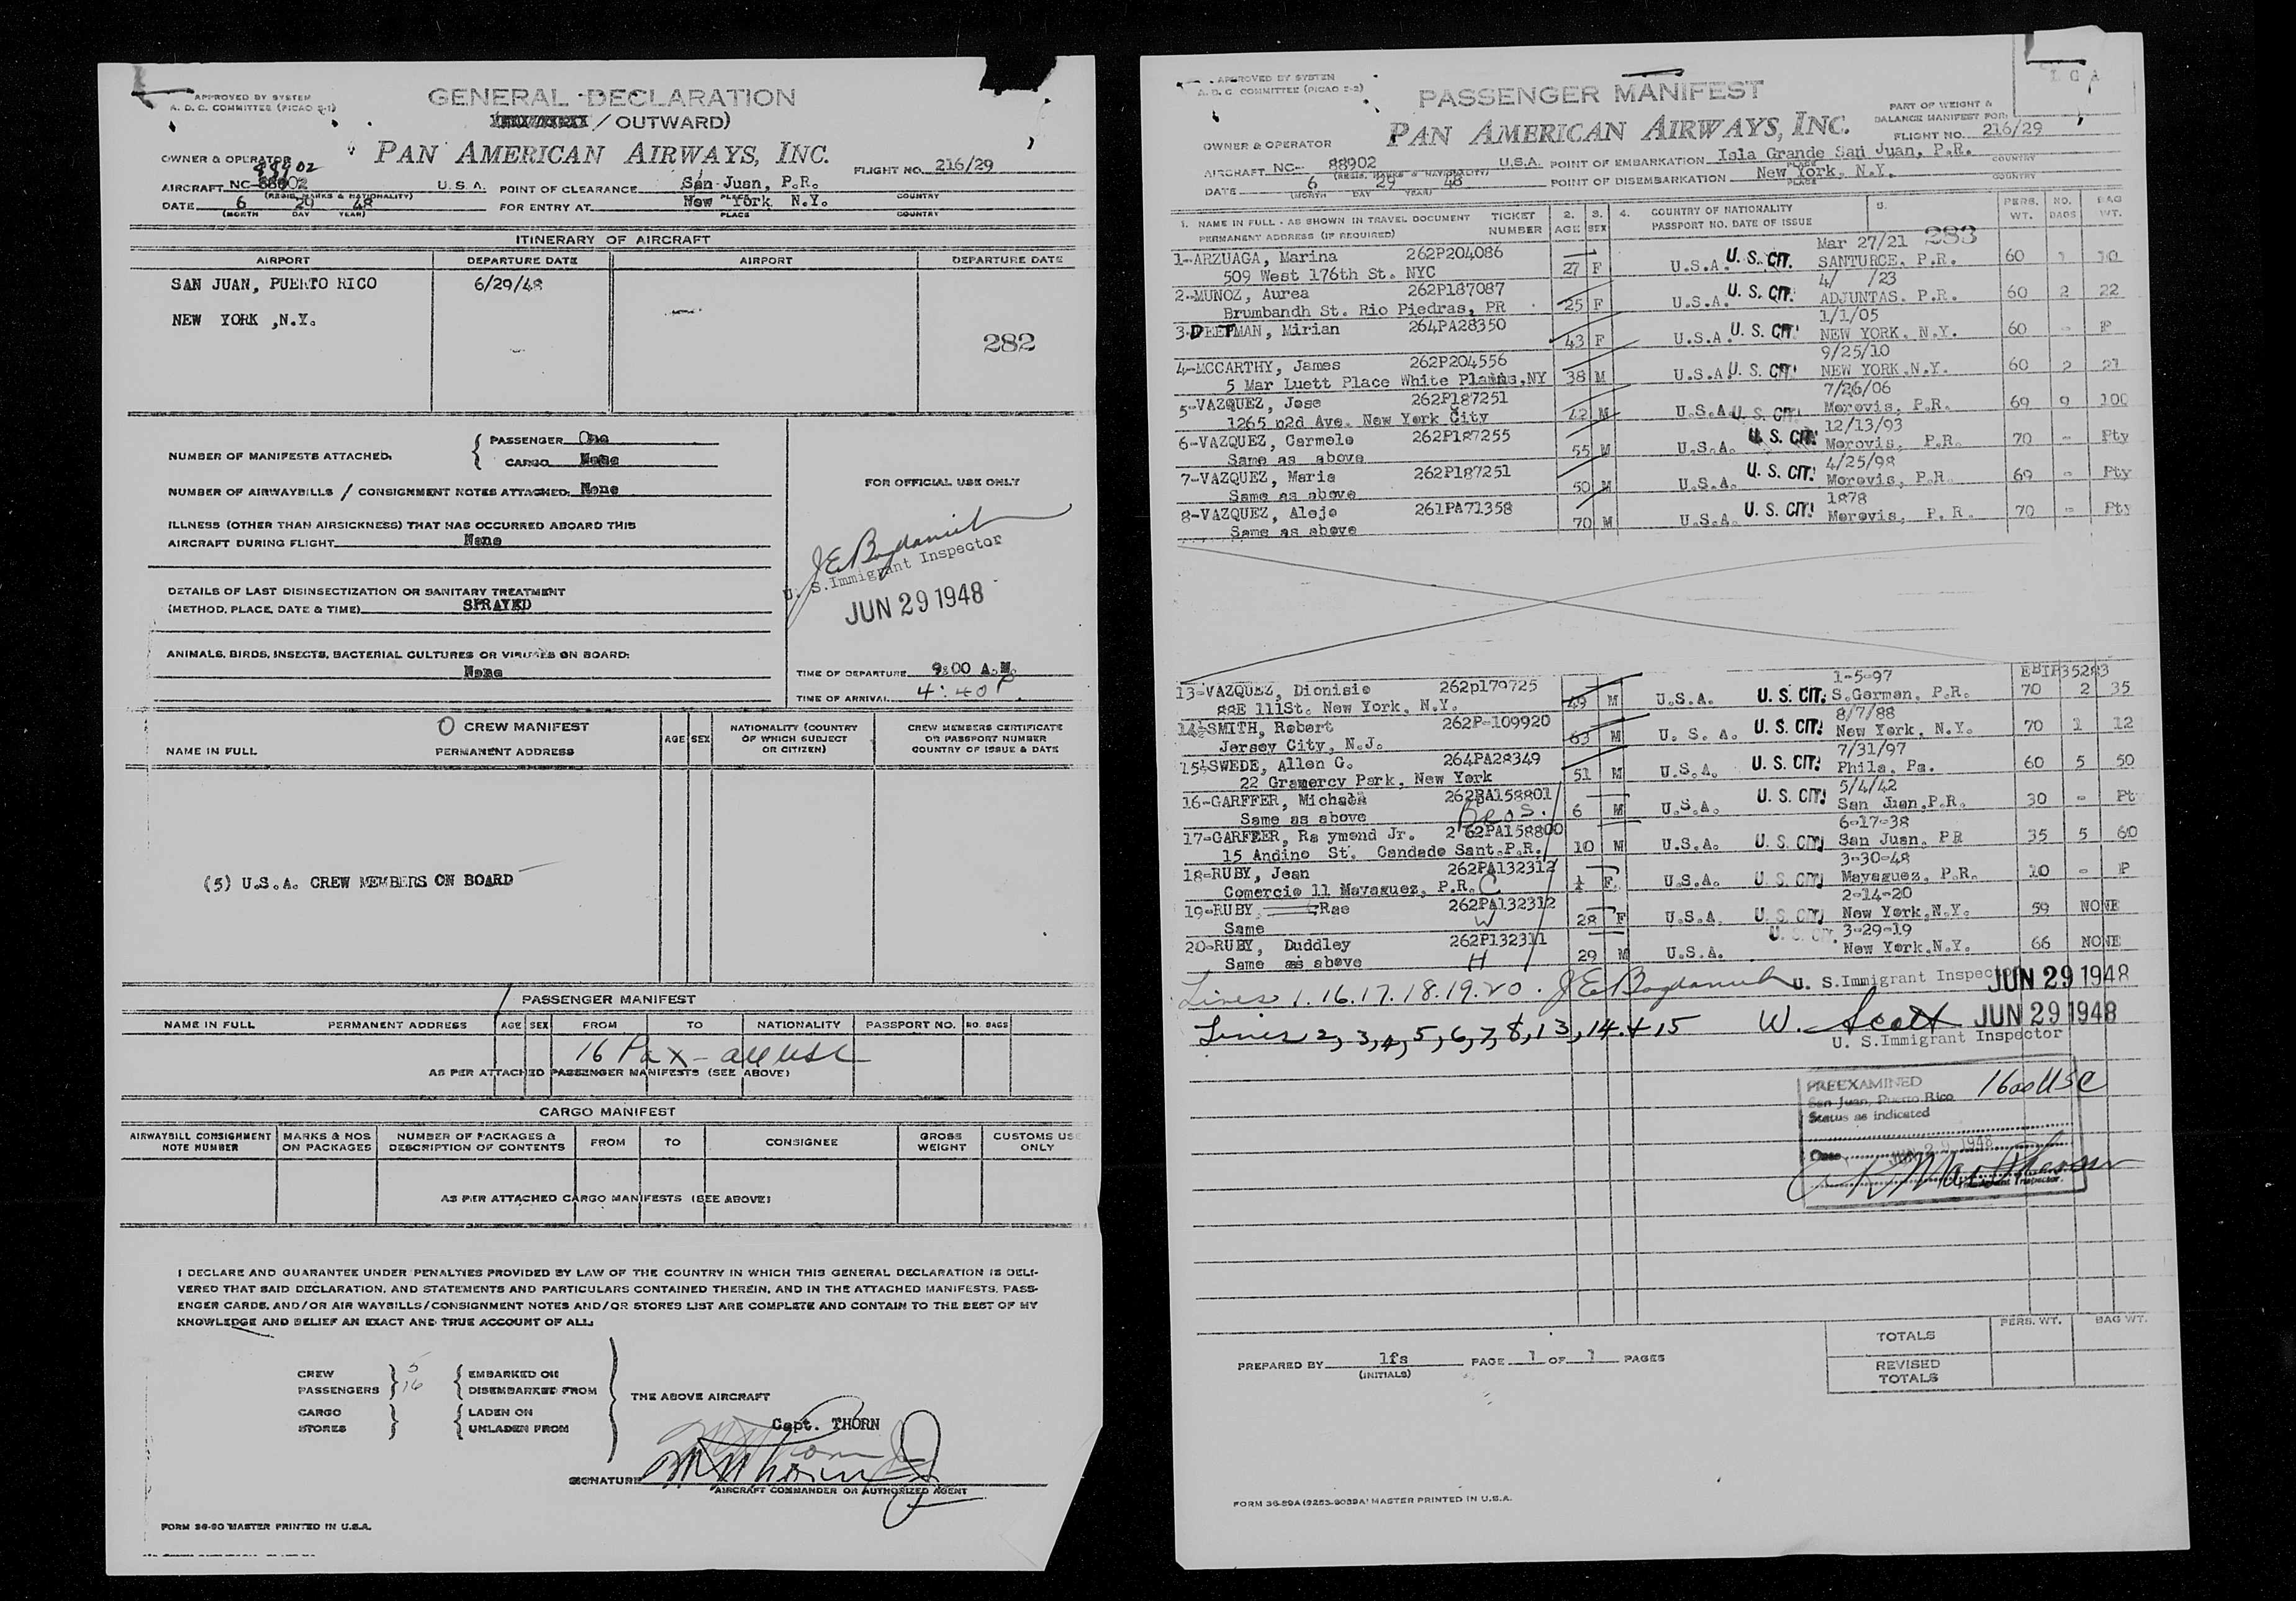 APPROVED BY SYSTEM
A. D. C. COMMITTEE (PICAO E-1)
GENERAL DECLARATION
/ OUTWARD)
OWNER & OPERATOR
PAN AMERICAN AIRWAYS, INC.
FLIGHT NO. 216/29
88902
AIRCRAFT NC-88902 U.S.A. POINT OF CLEARANCE San Juan, P.R.
(REGIS. MARKS & NATIONALITY) PLACE COUNTRY
DATE 6 29 48 FOR ENTRY AT New York N.Y.
(MONTH DAY YEAR) PLACE COUNTRY
ITINERARY OF AIRCRAFT
AIRPORT DEPARTURE DATE AIRPORT DEPARTURE DATE
SAN JUAN, PUERTO RICO 6/29/48
NEW YORK ,N.Y.
282
NUMBER OF MANIFESTS ATTACHED: PASSENGER One
CARGO None
NUMBER OF AIRWAYBILLS / CONSIGNMENT NOTES ATTACHED: None
ILLNESS (OTHER THAN AIRSICKNESS) THAT HAS OCCURRED ABOARD THIS
AIRCRAFT DURING FLIGHT None
DETAILS OF LAST DISINSECTIZATION OR SANITARY TREATMENT
(METHOD, PLACE, DATE & TIME) SPRAYED
ANIMALS, BIRDS, INSECTS, BACTERIAL CULTURES OR VIRUSES ON BOARD:
None
FOR OFFICIAL USE ONLY
U. S.Immigrant Inspector
JUN 29 1948
TIME OF DEPARTURE 9:00 A.M.
TIME OF ARRIVAL 4:40 P.
O CREW MANIFEST
NAME IN FULL PERMANENT ADDRESS AGE SEX NATIONALITY (COUNTRY OF WHICH SUBJECT OR CITIZEN) CREW MEMBERS CERTIFICATE OR PASSPORT NUMBER COUNTRY OF ISSUE & DATE
(5) U.S.A. CREW MEMBERS ON BOARD
PASSENGER MANIFEST
NAME IN FULL PERMANENT ADDRESS AGE SEX FROM TO NATIONALITY PASSPORT NO. NO. BAGS
16 Pax - all USC
AS PER ATTACHED PASSENGER MANIFESTS (SEE ABOVE)
CARGO MANIFEST
AIRWAYBILL CONSIGNMENT NOTE NUMBER MARKS & NOS ON PACKAGES NUMBER OF PACKAGES & DESCRIPTION OF CONTENTS FROM TO CONSIGNEE GROSS WEIGHT CUSTOMS USE ONLY
AS PER ATTACHED CARGO MANIFESTS (SEE ABOVE)
I DECLARE AND GUARANTEE UNDER PENALTIES PROVIDED BY LAW OF THE COUNTRY IN WHICH THIS GENERAL DECLARATION IS DELI-
VERED THAT SAID DECLARATION, AND STATEMENTS AND PARTICULARS CONTAINED THEREIN, AND IN THE ATTACHED MANIFESTS, PASS-
ENGER CARDS, AND/OR AIR WAYBILLS/CONSIGNMENT NOTES AND/OR STORES LIST ARE COMPLETE AND CONTAIN TO THE BEST OF MY
KNOWLEDGE AND BELIEF AN EXACT AND TRUE ACCOUNT OF ALL
CREW 5 EMBARKED ON
PASSENGERS 16 DISEMBARKED FROM
THE ABOVE AIRCRAFT
CARGO LADEN ON
STORES UNLADEN FROM
Capt. THORN
SIGNATURE
AIRCRAFT COMMANDER OR AUTHORIZED AGENT
FORM 36-90 MASTER PRINTED IN U.S.A.
APPROVED BY SYSTEM
A. D. C COMMITTEE (PICAO E-2)
PASSENGER MANIFEST
PART OF WEIGHT &
BALANCE MANIFEST FOR:
OWNER & OPERATOR
PAN AMERICAN AIRWAYS, INC.
FLIGHT NO. 216/29
AIRCRAFT NC- 88902 U.S.A. POINT OF EMBARKATION Isla Grande San Juan, P.R.
(REGIS. MARKS & NATIONALITY) PLACE COUNTRY
DATE 6 29 48 POINT OF DISEMBARKATION New York, N.Y.
(MONTH DAY YEAR) PLACE COUNTRY
1. NAME IN FULL - AS SHOWN IN TRAVEL DOCUMENT TICKET NUMBER 2. AGE 3. SEX 4. COUNTRY OF NATIONALITY 5. PERS. WT. NO. BAGS BAG WT.
PERMANENT ADDRESS (IF REQUIRED) PASSPORT NO. DATE OF ISSUE
283
1-ARZUAGA, Marina 262P204086 Mar 27/21
509 West 176th St. NYC 27 F U.S.A. U. S. CIT. SANTURCE, P.R. 60 1 10
2-MUNOZ, Aurea 262P187087 4/ /23
Brumbandh St. Rio Piedras, PR 25 F U.S.A. U. S. CIT. ADJUNTAS. P.R. 60 2 22
3-DEETMAN, Mirian 264PA28350 1/1/05
43 F U.S.A. U. S. CIT. NEW YORK, N.Y. 60 - P
4-MCCARTHY, James 262P204556 9/25/10
5 Mar Luett Place White Plains,NY 38 M U.S.A. U. S. CIT. NEW YORK,N.Y. 60 2 21
5-VAZQUEZ, Jose 262P187251 7/26/06
1265 n2d Ave. New York City 42 M U.S.A. U. S. CIT. Morovis, P.R. 69 9 100
6-VAZQUEZ, Carmelo 262P187255 12/13/93
Same as above 55 M U.S.A. U. S. CIT. Morovis, P.R. 70 - Pty
7-VAZQUEZ, Maria 262P187251 4/25/98
Same as above 50 M U.S.A. U. S. CIT. Morovis, P.R. 69 - Pty
8-VAZQUEZ, Alejo 261PA71358 1878
Same as above 70 M U.S.A. U. S. CIT. Morovis, P. R. 70 - Pty
13-VAZQUEZ, Dionisio 262p179725 1-5-97 EBTP35283
88E 111St. New York, N.Y. 49 M U.S.A. U. S. CIT. S.German, P.R. 70 2 35
14-SMITH, Robert 262P-109920 8/7/88
Jersey City, N.J. 63 M U. S. A. U. S. CIT. New York, N.Y. 70 1 12
15-SWEDE, Allen G. 264PA28349 7/31/97
22 Gramercy Park, New York 51 M U.S.A. U. S. CIT. Phila, Pa. 60 5 50
16-GARFFER, Michael 262PA158801 5/4/42
Same as above Bros. 6 M U.S.A. U. S. CIT. San Juan,P.R. 30 - Pt
17-GARFFER, Raymond Jr. 262PA158800 6-17-38
15 Andino St. Condado Sant.P.R. 10 M U.S.A. U. S. CIT. San Juan, PR 35 5 60
18-RUBY, Jean 262PA132312 3-30-48
Comercio 11 Mayaguez, P.R. C F. U.S.A. U. S. CIT. Mayaguez, P.R. 10 - P
19-RUBY, Rae 262PA132312 2-14-20
Same W 28 F U.S.A. U. S. CIT. New York,N.Y. 59 NONE
20-RUBY, Duddley 262P132311 3-29-19
Same as above H 29 M U.S.A. U. S. CIT. New York,N.Y. 66 NONE
Lines 1.16.17.18.19.20. U. S.Immigrant Inspector JUN 29 1948
Lines 2, 3, 4, 5, 6, 7, 8, 13, 14. + 15 W. Scott JUN 29 1948
U. S.Immigrant Inspector
PREEXAMINED 16 USC
San Juan, Puerto Rico
Status as indicated
Date JUN 29 1948
Immigrant Inspector
PERS. WT. BAG WT.
TOTALS
REVISED
TOTALS
PREPARED BY lfs PAGE 1 OF 1 PAGES
(INITIALS)
FORM 36-89A (9263-9089A) MASTER PRINTED IN U.S.A.